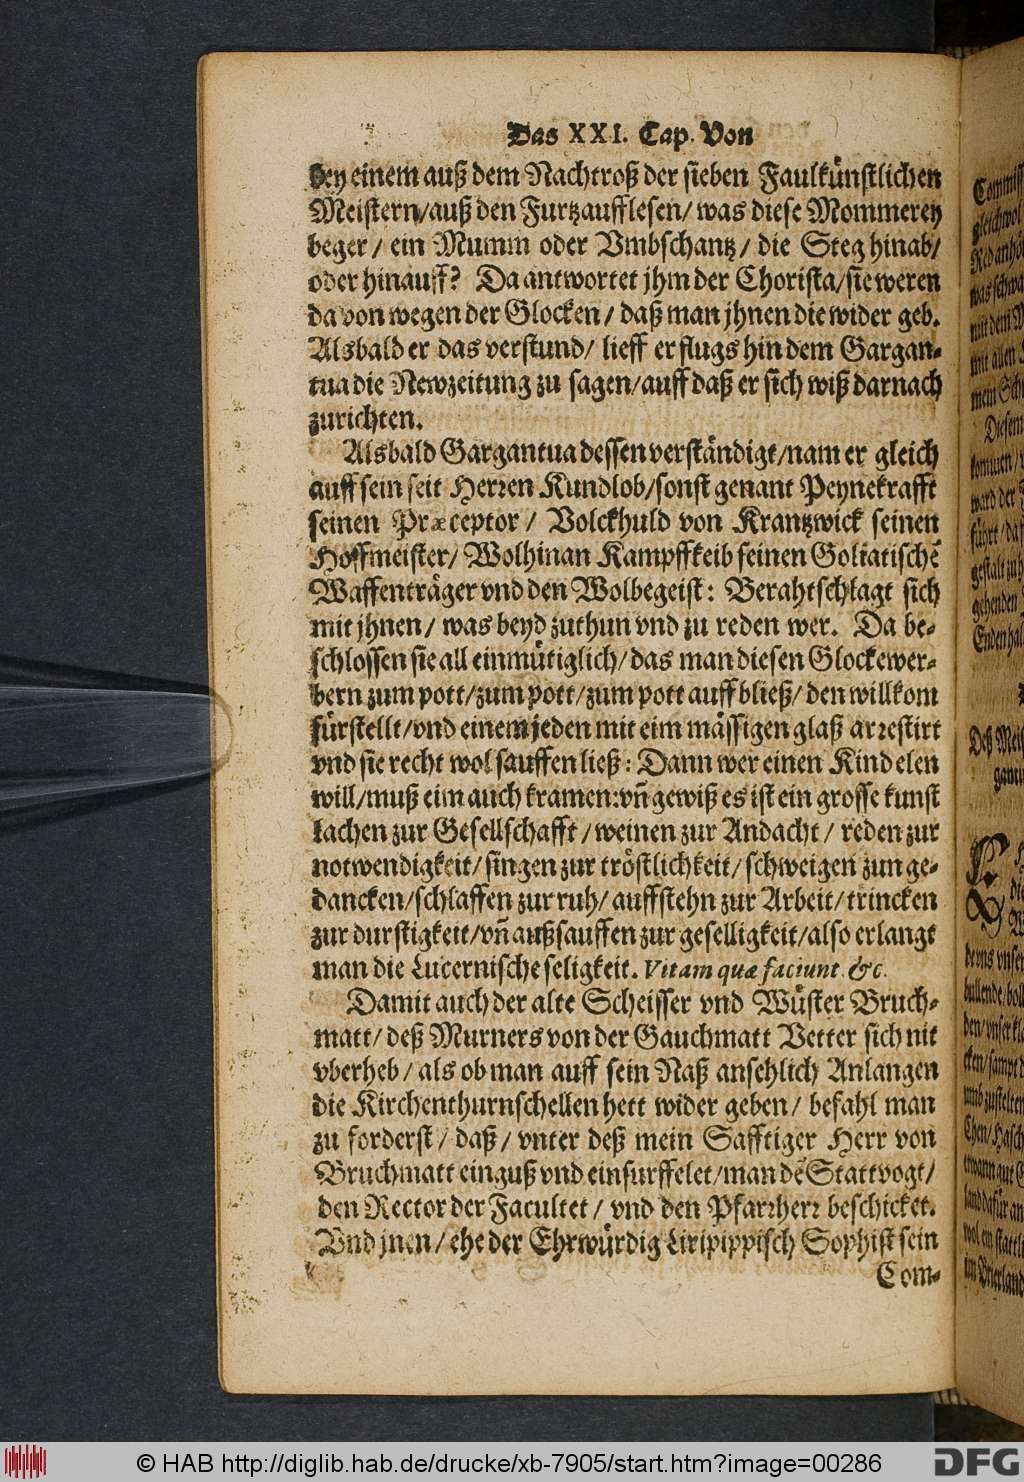 Das XXI. Cap. Von
bey einem auß dem Nachtroß der sieben Faulkünstlichen
Meistern/auß den Furtzaufflesen/ was diese Mommerey
beger / ein Mumm oder Vmbschantz / die Steg hinab/
oder hinauff? Da antwortet jhm der Chorista/sie weren
da von wegen der Glocken / daß man jhnen die wider geb.
Alsbald er das verstund/ lieff er flugs hin dem Gargan-
tua die Newzeitung zu sagen/auff daß er sich wiß darnach
zurichten.
Alsbald Gargantua dessen verständigt/nam er gleich
auff sein seit Herren Kundlob/sonst genant Peynekrafft
seinen Præceptor / Volckhuld von Krantzwick seinen
Hoffmeister/ Wolhinan Kampffkeib seinen Goliatischē
Waffenträger vnd den Wolbegeist: Berahtschlagt sich
mit jhnen/ was beyd zuthun vnd zu reden wer. Da be-
schlossen sie all einmütiglich/das man diesen Glockewer-
bern zum pott/zum pott/zum pott auff bließ/ den willkom
fürstellt/vnd einem jeden mit eim mässigen glaß arrestirt
vnd sie recht wol sauffen ließ: Dann wer einen Kind elen
will/muß eim auch kramen:vñ gewiß es ist ein grosse kunst
lachen zur Gesellschafft / weinen zur Andacht / reden zur
notwendigkeit/singen zur tröstlichkeit/schweigen zun ge-
dancken/schlaffen zur ruh/ auffstehn zur Arbeit/trincken
zur durstigkeit/vñ außsauffen zur geselligkeit/also erlangt
man die Lucernische seligkeit. Vitam quæ faciunt. &c.
Damit auch der alte Scheisser vnd Wüster Bruch-
matt/ deß Murners von der Gauchmatt Vetter sich nit
vberheb / als ob man auff sein Naß ansehlich Anlangen
die Kirchenthurnschellen hett wider geben/ befahl man
zu forderst / daß / vnter deß mein Safftiger Herr von
Bruchmatt einguß vnd einsurffelet/man dē Stattvogt/
den Rector der Facultet / vnd den Pfarrherr beschicket.
Vnd jnen / ehe der Ehrwürdig Liripippisch Sophist sein
Com-
© HAB http://diglib.hab.de/drucke/xb-7905/start.htm?image=00286
DFG